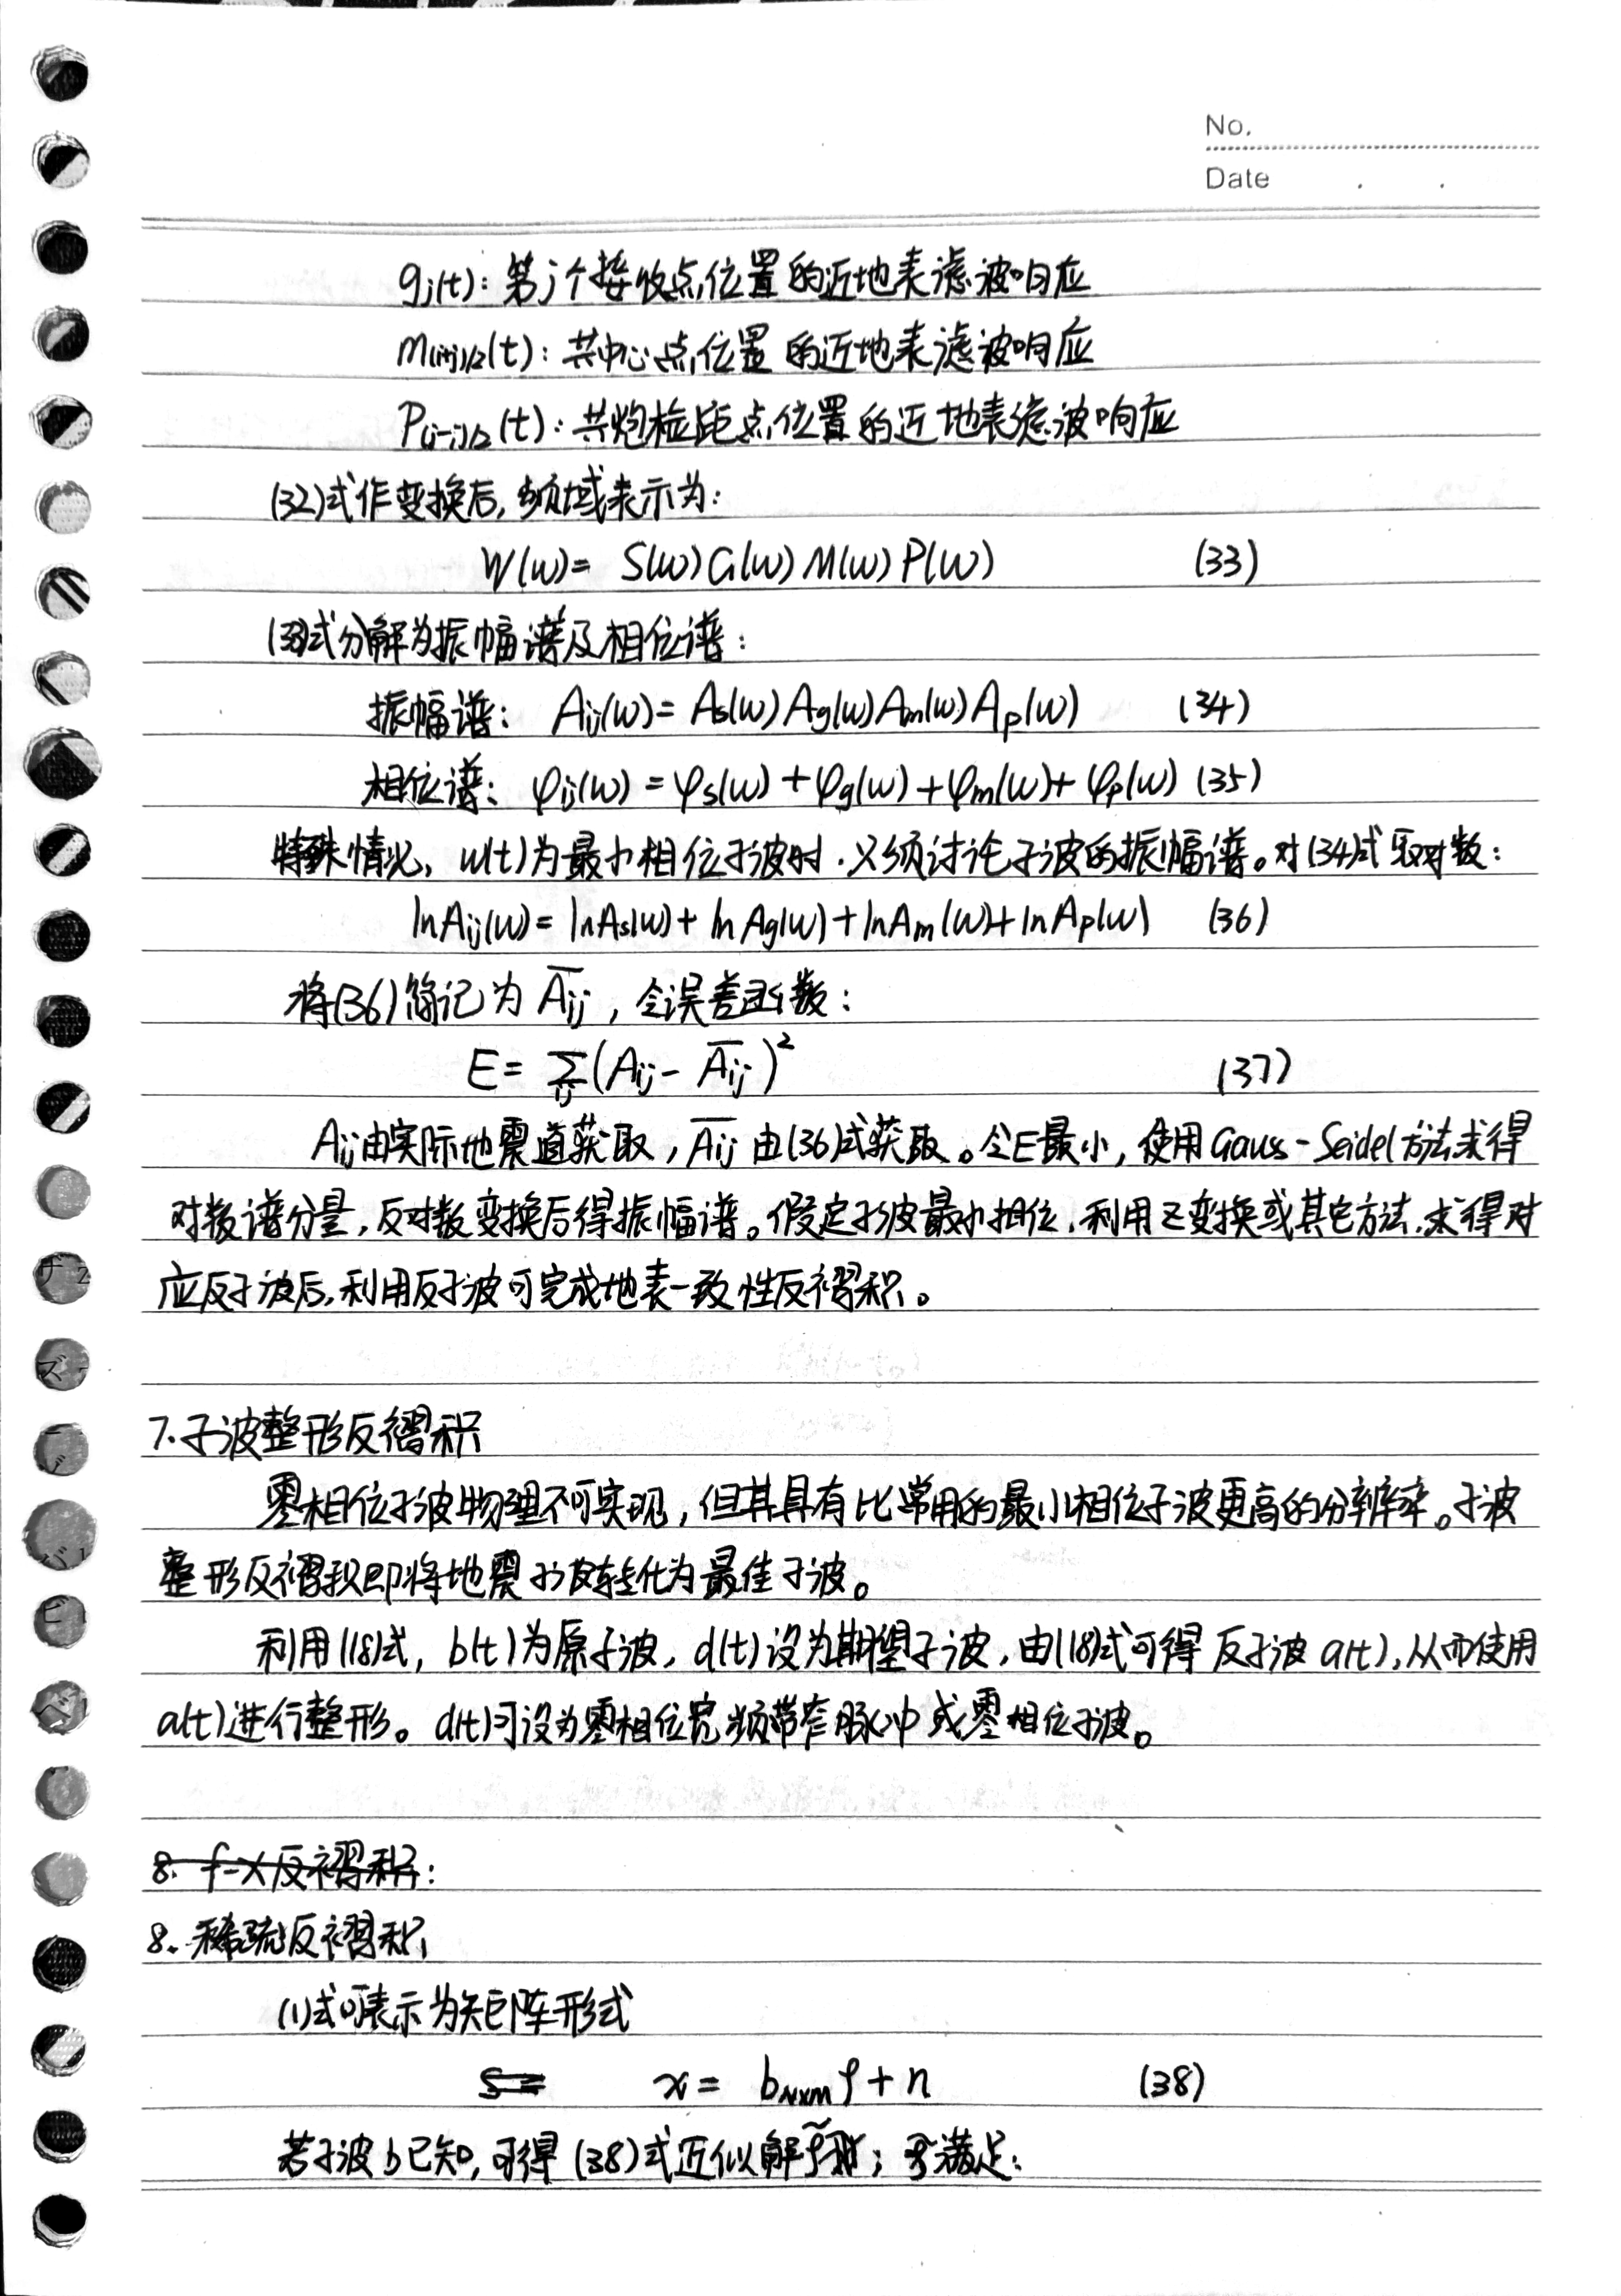 No.
Date
gj(t): 第j个接收点位置的近地表滤波响应
m(i+j)/2(t): 共中心点位置的近地表滤波响应
P(i-j)/2(t): 共炮检距点位置的近地表滤波响应
(32)式作变换后,频域表示为:
W(ω)= S(ω)G(ω)M(ω)P(ω) (33)
(33)式分解为振幅谱及相位谱:
振幅谱: Aij(ω)= As(ω)Ag(ω)Am(ω)Ap(ω) (34)
相位谱: φij(ω)=φs(ω)+φg(ω)+φm(ω)+φp(ω) (35)
特殊情况, w(t)为最小相位子波时,只须讨论子波的振幅谱。对(34)式取对数:
lnAij(ω)= lnAs(ω)+lnAg(ω)+lnAm(ω)+lnAp(ω) (36)
将(36)简记为 A̅ij, 令误差函数:
E= Σij(Aij- A̅ij)² (37)
Aij由实际地震道获取, A̅ij由(36)式获取。令E最小,使用Gauss-Seidel方法求得
对数谱分量,反对数变换后得振幅谱。假定子波最小相位,利用Z变换或其它方法,求得对
应反子波后,利用反子波可完成地表一致性反褶积。
7.子波整形反褶积
零相位子波物理不可实现,但其具有比常用的最小相位子波更高的分辨率。子波
整形反褶积即将地震子波转化为最佳子波。
利用(18)式, b(t)为原子波, d(t)设为期望子波,由(18)式可得反子波a(t),从而使用
a(t)进行整形。d(t)可设为零相位宽频带窄脉冲或零相位子波。
8. f-x反褶积:
8.稀疏反褶积
(1)式可表示为矩阵形式
S= x= bN×M ρ+n (38)
若子波b已知,可得(38)式近似解ρ̃; 满足: